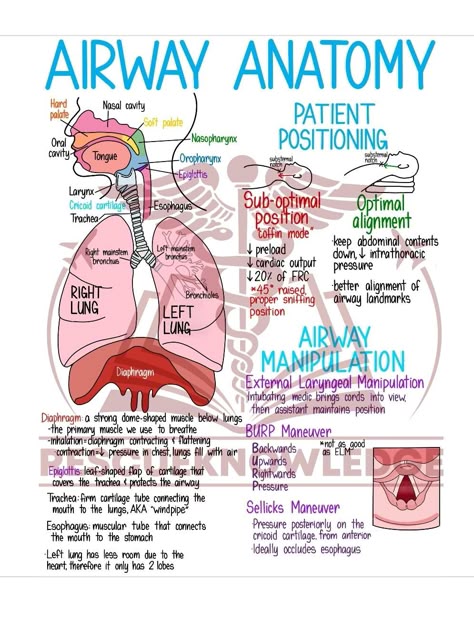 AIRWAY ANATOMY
Hard
palate
Nasal cavity
Soft palate
Oral
cavity
Nasopharynx
Tongue
Oropharynx
Epiglottis
Larynx
Cricoid cartilage
Trachea
Esophagus
Right mainstem
bronchus
Left mainstem
bronchus
Bronchioles
RIGHT
LUNG
LEFT
LUNG
Diaphragm
Diaphragm: a strong dome-shaped muscle below lungs
-the primary muscle we use to breathe
-inhalation=diaphragm contracting & flattening
contraction=↓ pressure in chest, lungs fill with air
Epiglottis: leaf-shaped flap of cartilage that
covers the trachea & protects the airway
Trachea: firm cartilage tube connecting the
mouth to the lungs, AKA "windpipe"
Esophagus: muscular tube that connects
the mouth to the stomach
·Left lung has less room due to the
heart, therefore it only has 2 lobes
PATIENT
POSITIONING
substernal
notch
substernal
notch
Sub-optimal
position
"coffin mode"
↓ preload
↓ cardiac output
↓ 20% of FRC
*45° raised,
proper sniffing
position
Optimal
alignment
·keep abdominal contents
down, ↓ intrathoracic
pressure
·better alignment of
airway landmarks
AIRWAY
MANIPULATION
External Laryngeal Manipulation
Intubating medic brings cords into view,
then assistant maintains position
BURP Maneuver
Backwards
Upwards
Rightwards
Pressure
*not as good
as ELM*
Sellicks Maneuver
·Pressure posteriorly on the
cricoid cartilage, from anterior
·Ideally occludes esophagus